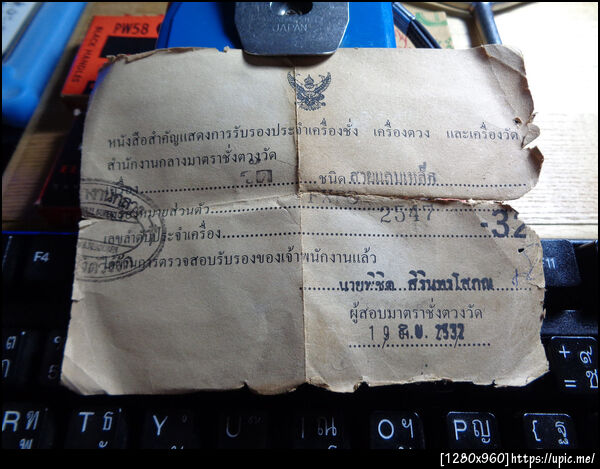 PW58
BLACK HANDLES
JAPAN
หนังสือสำคัญแสดงการรับรองประจำเครื่องชั่ง เครื่องตวง และเครื่องวัด
สำนักงานกลางมาตราชั่งตวงวัด
เครื่อง วัด ชนิด สายแถบเหล็ก
เครื่องหมายส่วนตัว
2547 -32
เลขลำดับประจำเครื่อง
ได้รับการตรวจสอบรับรองของเจ้าพนักงานแล้ว
นายพิชิต
ผู้สอบมาตราชั่งตวงวัด
19 มิ.ย. 2532
F4
R ฑ พ
T ธ
Y
U
I ณ
O ฯ
P ญ
{ ฐ
+ ๙
= ช
[1280x960]https://upic.me/